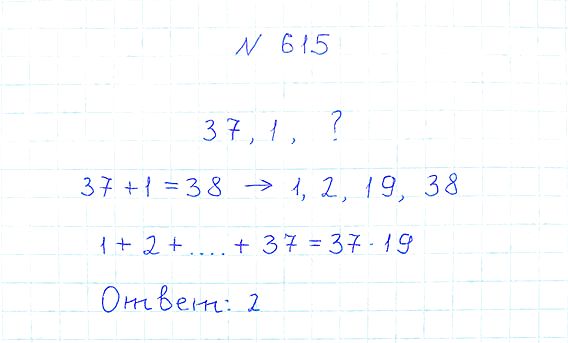 N 615
37, 1, ?
37 + 1 = 38 → 1, 2, 19, 38
1 + 2 + .... + 37 = 37 · 19
Ответ: 2